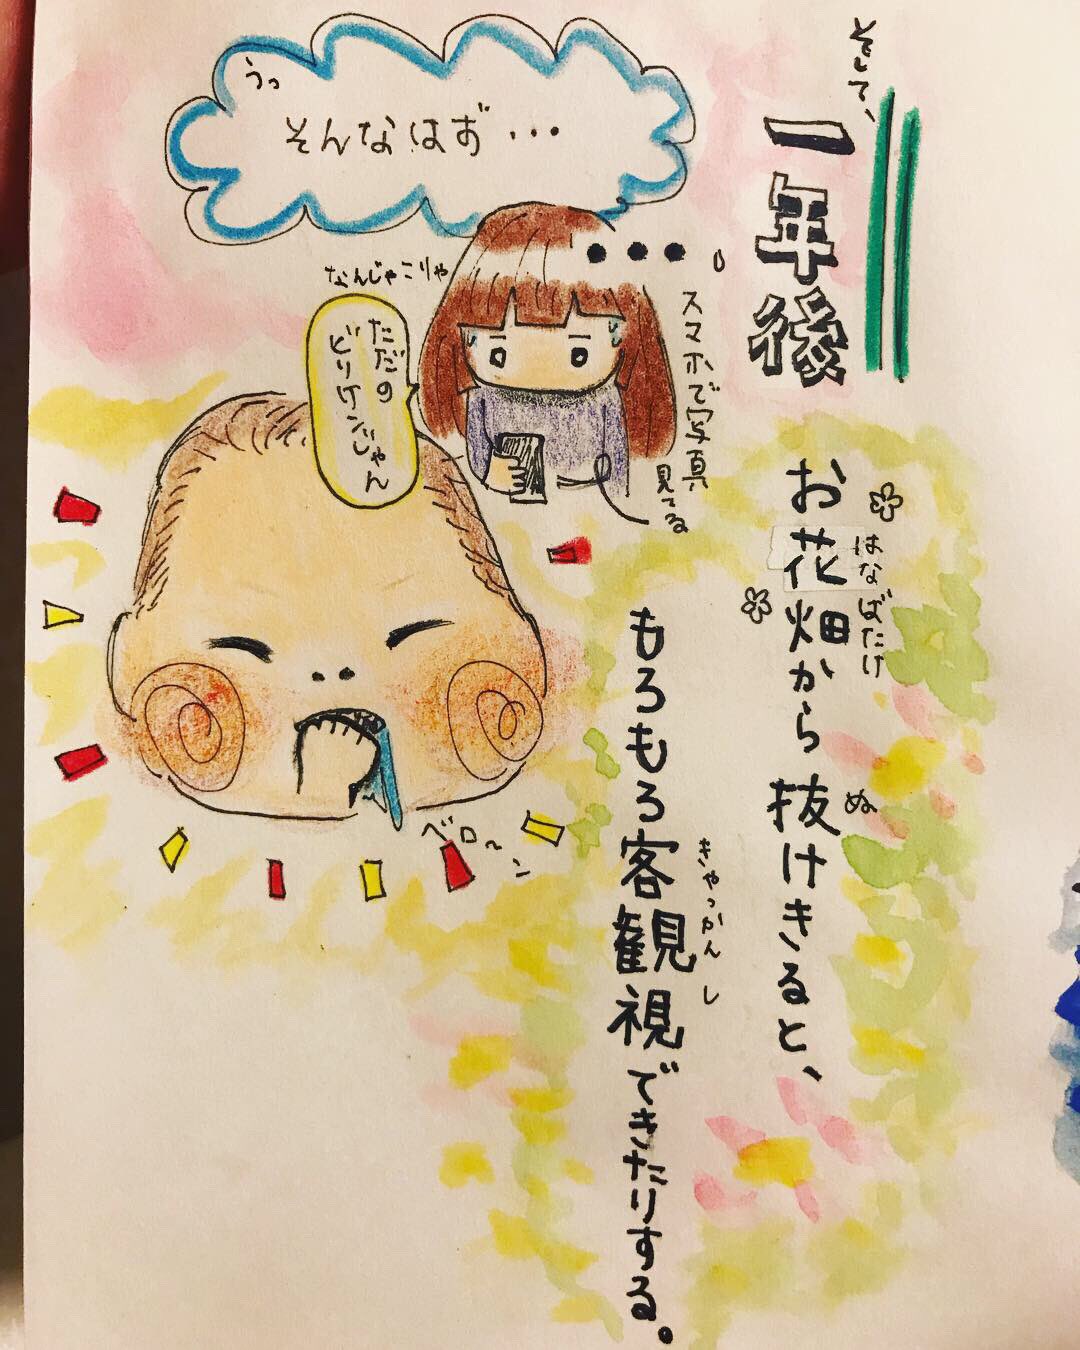 そして、
一年後
お花畑から抜けきると、
はなばたけ
ぬ
もろもろ客観視できたりする。
きゃっかんし
うっ
そんなはず・・・
・・・
スマホで写真
見てる
なんじゃこりゃ
ただの
ビリケンじゃん
ベロ〜ン